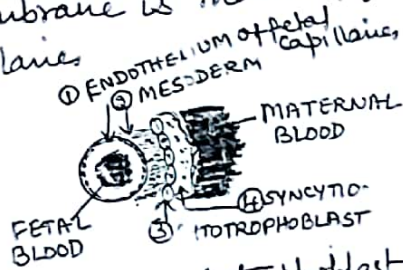 mbrane is
lanes
① ENDOTHELIUM of fetal
capillaries
② MESODERM
MATERNAL
BLOOD
④ SYNCYTIO-
TOTROPHOBLAST
③
FETAL
BLOOD